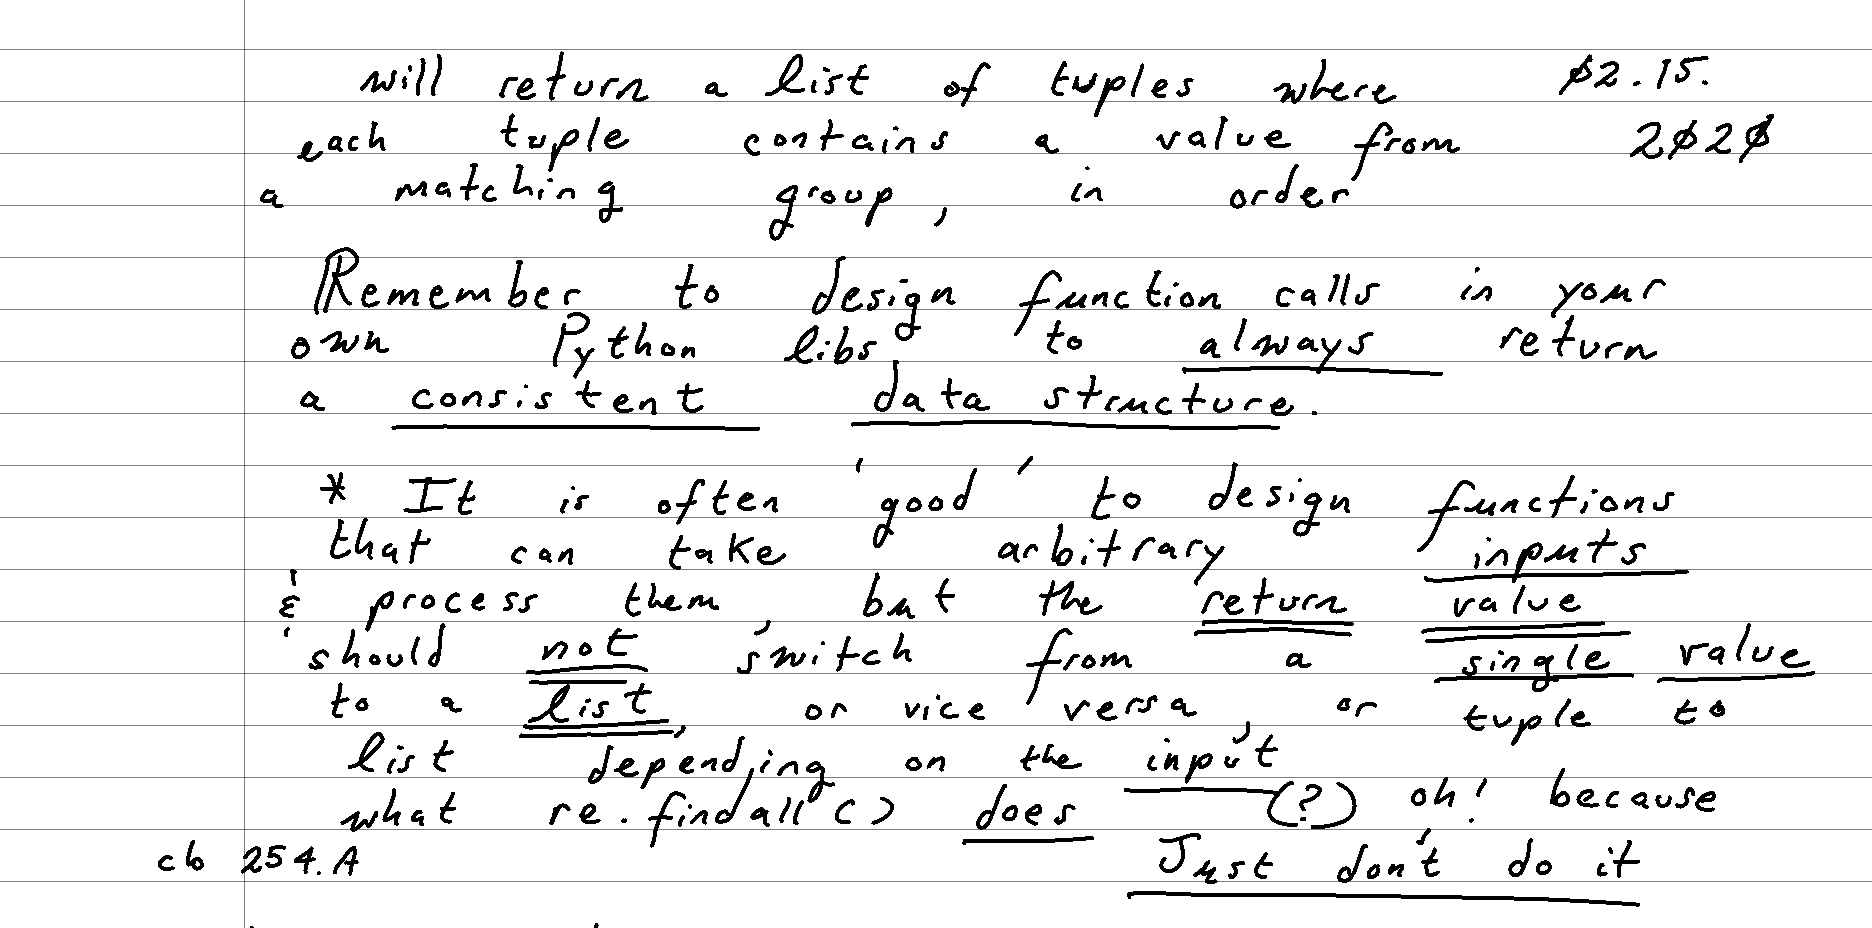 will return a list of tuples where ø2.15.
each tuple contains a value from 2ø2ø
a matching group, in order
Remember to design function calls in your
own Python libs to always return
a consistent data structure.
* It is often 'good' to design functions
that can take arbitrary inputs
& process them, but the return value
should not switch from a single value
to a list, or vice versa, or tuple to
list depending on the input
what re.findall() does (?) oh! because
cb 254.A Just don't do it